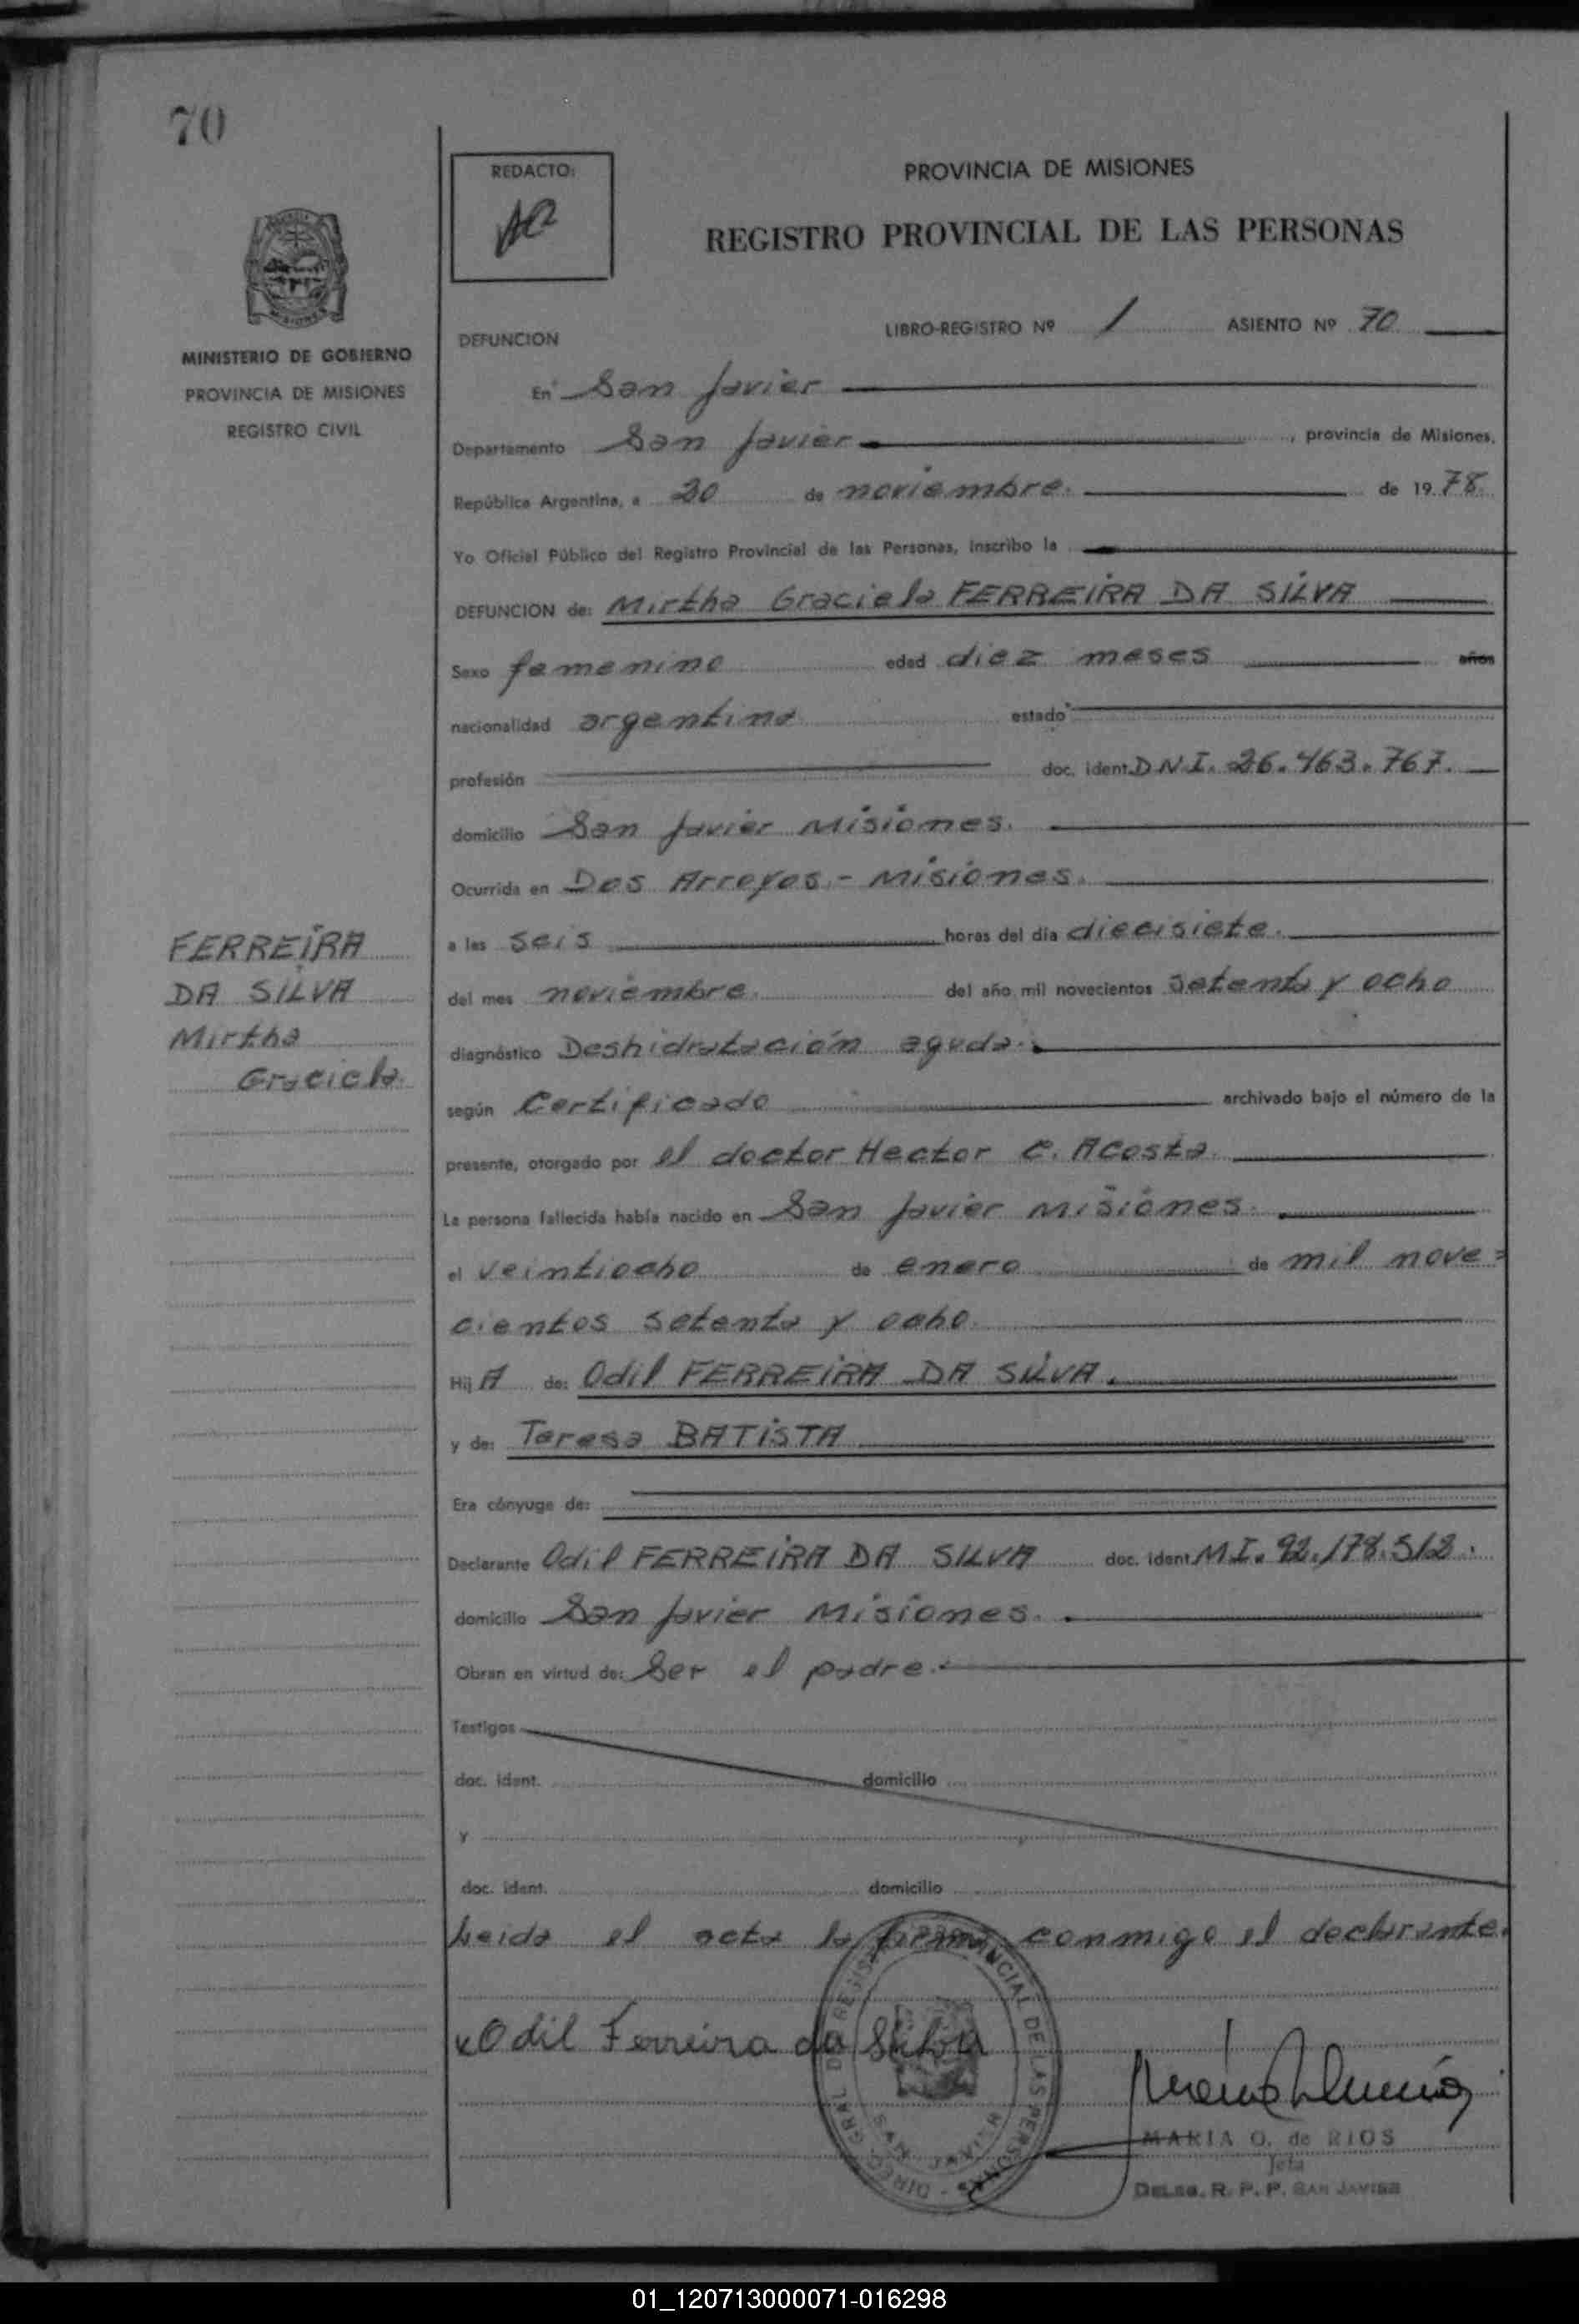 70
REDACTO:
PROVINCIA DE MISIONES
REGISTRO PROVINCIAL DE LAS PERSONAS
MINISTERIO DE GOBIERNO
PROVINCIA DE MISIONES
REGISTRO CIVIL
DEFUNCION
LIBRO-REGISTRO Nº 1 ASIENTO Nº 70
En San Javier
Departamento San Javier, provincia de Misiones,
República Argentina, a 20 de noviembre. de 1978.
Yo Oficial Público del Registro Provincial de las Personas, inscribo la
DEFUNCION de: Mirtha Graciela FERREIRA DA SILVA
Sexo femenino edad diez meses años
nacionalidad argentina estado
profesión doc. ident. D.N.I. 26.463.767.
domicilio San Javier Misiones.
Ocurrida en Dos Arroyos.- Misiones.
a las seis horas del día diecisiete.
del mes noviembre. del año mil novecientos setenta y ocho
diagnóstico Deshidratación aguda.
según Certificado archivado bajo el número de la
presente, otorgado por el doctor Hector C. Acosta.
La persona fallecida había nacido en San Javier Misiones.
el veintiocho de enero de mil nove=
cientos setenta y ocho.
Hij A de: Odil FERREIRA DA SILVA.
y de: Teresa BATISTA
Era cónyuge de:
Declarante Odil FERREIRA DA SILVA doc. ident. M.I. 92.178.512.
domicilio San Javier Misiones.
Obran en virtud de: Ser el padre.
Testigos
doc. ident. domicilio
y
doc. ident. domicilio
Leida el acta la firma conmigo el declarante.
Odil Ferreira da Silva
MARIA O. de RIOS
Jefa
DELEG. R. P. P. SAN JAVIER
FERREIRA
DA SILVA
Mirtha
Graciela
01_120713000071-016298